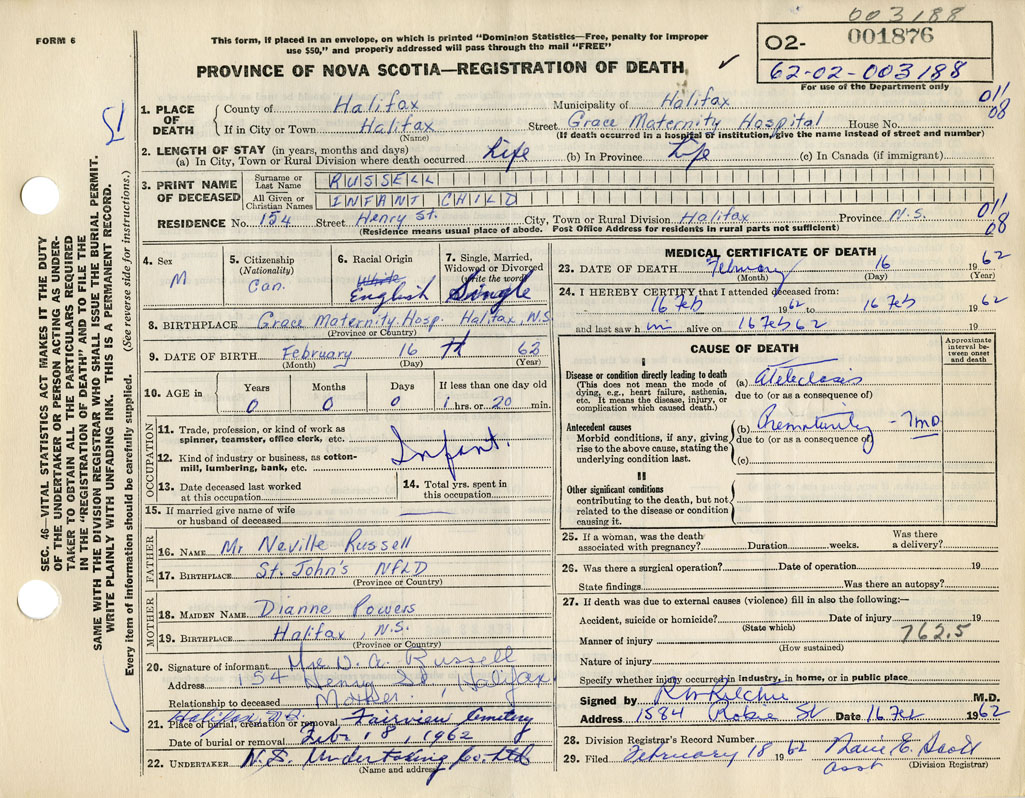 003188
FORM 6
This form, if placed in an envelope, on which is printed "Dominion Statistics—Free, penalty for improper
use $50," and properly addressed will pass through the mail "FREE"
O2- 001876
62-02-003188
For use of the Department only
PROVINCE OF NOVA SCOTIA—REGISTRATION OF DEATH
1. PLACE OF DEATH County of Halifax Municipality of Halifax 011
If in City or Town Halifax Street Grace Maternity Hospital House No. 08
(Name) (If death occurred in a hospital or institution, give the name instead of street and number)
2. LENGTH OF STAY (in years, months and days)
(a) In City, Town or Rural Division where death occurred Life (b) In Province Life (c) In Canada (if immigrant)
3. PRINT NAME OF DECEASED Surname or Last Name RUSSELL
All Given or Christian Names INFANT CHILD
RESIDENCE No. 154 Street Henry St. City, Town or Rural Division Halifax Province N.S. 011
(Residence means usual place of abode. Post Office Address for residents in rural parts not sufficient) 08
4. Sex M
5. Citizenship (Nationality) Can.
6. Racial Origin White English
7. Single, Married, Widowed or Divorced (write the word) Single
8. BIRTHPLACE Grace Maternity Hosp. Halifax, N.S.
(Province or Country)
9. DATE OF BIRTH February 16 th 63
(Month) (Day) (Year)
10. AGE in Years Months Days If less than one day old
0 0 0 1 hrs. or 20 min.
OCCUPATION
11. Trade, profession, or kind of work as spinner, teamster, office clerk, etc. Infant.
12. Kind of industry or business, as cotton-mill, lumbering, bank, etc.
13. Date deceased last worked at this occupation
14. Total yrs. spent in this occupation
15. If married give name of wife or husband of deceased
FATHER
16. NAME Mr Neville Russell
17. BIRTHPLACE St. John's NFLD
(Province or Country)
MOTHER
18. MAIDEN NAME Dianne Powers
19. BIRTHPLACE Halifax, N.S.
(Province or Country)
20. Signature of informant Mrs. D. A. Russell
Address 154 Henry St, Halifax
Relationship to deceased Mother
21. Place of burial, cremation or removal Halifax N.S. Fairview Cemetery
Date of burial or removal Feb. 18, 1962
22. UNDERTAKER N.S. Undertaking Co. Ltd
(Name and address)
MEDICAL CERTIFICATE OF DEATH
23. DATE OF DEATH February 16 1962
(Month) (Day) (Year)
24. I HEREBY CERTIFY that I attended deceased from:
16 Feb 1962 to 16 Feb 1962
and last saw h im alive on 16 Feb 62 19
CAUSE OF DEATH
Approximate interval between onset and death
I
Disease or condition directly leading to death
(This does not mean the mode of dying, e.g., heart failure, asthenia, etc. It means the disease, injury, or complication which caused death.)
(a)
due to (or as a consequence of)
Antecedent causes
Morbid conditions, if any, giving rise to the above cause, stating the underlying condition last.
(b) Prematurity - 7 mo
due to (or as a consequence of)
(c)
II
Other significant conditions
contributing to the death, but not related to the disease or condition causing it.
25. If a woman, was the death associated with pregnancy? Duration weeks. Was there a delivery?
26. Was there a surgical operation? Date of operation 19
State findings Was there an autopsy?
27. If death was due to external causes (violence) fill in also the following:
Accident, suicide or homicide? Date of injury 19
(State which) 762.5
Manner of injury
(How sustained)
Nature of injury
Specify whether injury occurred in industry, in home, or in public place
Signed by R W Ritchie M.D.
Address 1584 Robie St Date 16 Feb 1962
28. Division Registrar's Record Number
29. Filed February 18 1962 Marie E. Scott
asst (Division Registrar)
SEC. 46—VITAL STATISTICS ACT MAKES IT THE DUTY
OF THE UNDERTAKER OR PERSON ACTING AS UNDER-
TAKER TO OBTAIN ALL THE PARTICULARS REQUIRED
IN THE "REGISTRATION OF DEATH" AND TO FILE THE
SAME WITH THE DIVISION REGISTRAR WHO SHALL ISSUE THE BURIAL PERMIT.
WRITE PLAINLY WITH UNFADING INK. THIS IS A PERMANENT RECORD.
Every item of information should be carefully supplied. (See reverse side for instructions.)